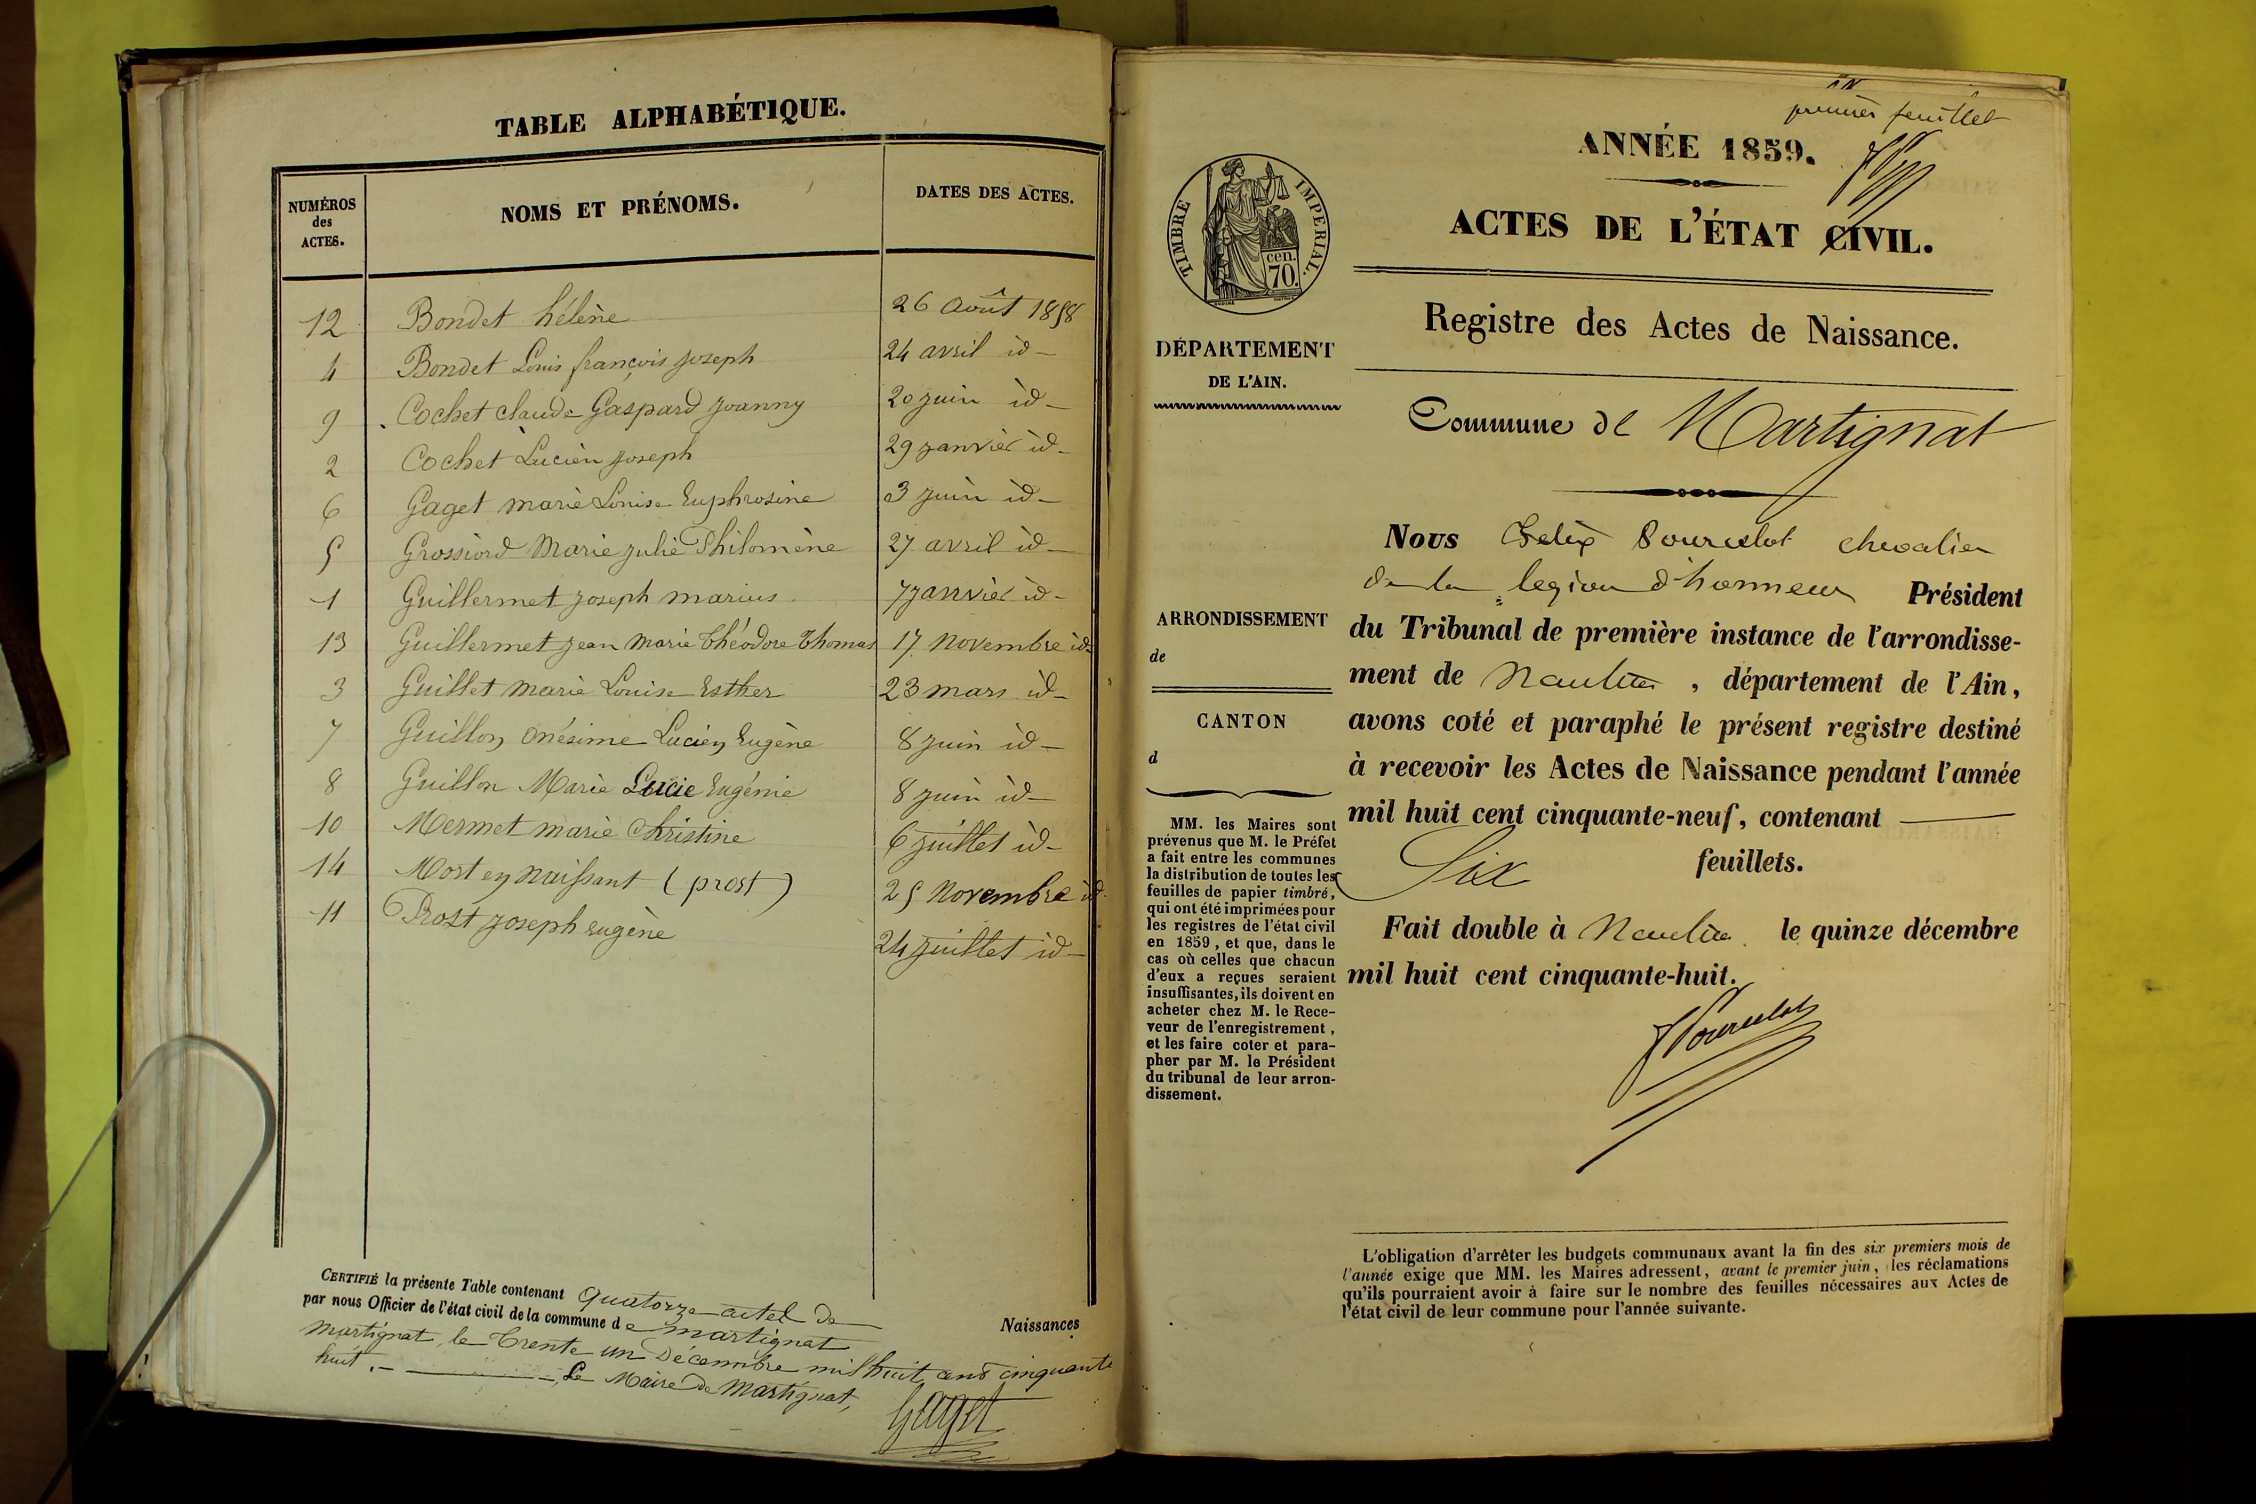 TABLE ALPHABÉTIQUE.
NUMÉROS des ACTES.
NOMS ET PRÉNOMS.
DATES DES ACTES.
12 Bondet hélène 26 Août 1858
4 Bondet Louis françois joseph 24 avril id -
9 Cochet claude Gaspard joanny 20 juin id -
2 Cochet Lucien joseph 29 janvier id -
6 Gaget marie Louise Euphrosine 3 juin id -
5 Grossiord Marie julie Philomène 27 avril id -
1 Guillermet joseph marius 7 janvier id -
13 Guillermet jean Marie théodore thomas 17 novembre id
3 Guillet marie Louise Esther 23 mars id -
7 Guillon onésime Lucien Eugène 8 juin id -
8 Guillon Marie Lucie Eugénie 8 juin id -
10 Mermet marie christine 6 juillet id -
14 Mort en naissant (prost) 25 novembre id
11 Prost joseph eugène 24 juillet id -
CERTIFIÉ la présente Table contenant quatorze actes de Naissances
par nous Officier de l'état civil de la commune de martignat
martignat, le trente un Décembre mil huit cent cinquante
huit. - Le Maire de Martignat,
Gaget
premier feuillet
ANNÉE 1859.
ACTES DE L'ÉTAT CIVIL.
Registre des Actes de Naissance.
Commune de Martignat
TIMBRE IMPERIAL.
70 cen.
DÉPARTEMENT
DE L'AIN.
ARRONDISSEMENT
de
CANTON
d
MM. les Maires sont
prévenus que M. le Préfet
a fait entre les communes
la distribution de toutes les
feuilles de papier timbré,
qui ont été imprimées pour
les registres de l'état civil
en 1859, et que, dans le
cas où celles que chacun
d'eux a reçues seraient
insuffisantes, ils doivent en
acheter chez M. le Rece-
veur de l'enregistrement,
et les faire coter et para-
pher par M. le Président
du tribunal de leur arron-
dissement.
Nous Felix Pourcelot chevalier
de la legion d'honneur Président
du Tribunal de première instance de l'arrondisse-
ment de Nantua, département de l'Ain,
avons coté et paraphé le présent registre destiné
à recevoir les Actes de Naissance pendant l'année
mil huit cent cinquante-neuf, contenant
Six feuillets.
Fait double à Nantua le quinze décembre
mil huit cent cinquante-huit.
FPourcelot
L'obligation d'arrêter les budgets communaux avant la fin des six premiers mois de
l'année exige que MM. les Maires adressent, avant le premier juin, les réclamations
qu'ils pourraient avoir à faire sur le nombre des feuilles nécessaires aux Actes de
l'état civil de leur commune pour l'année suivante.